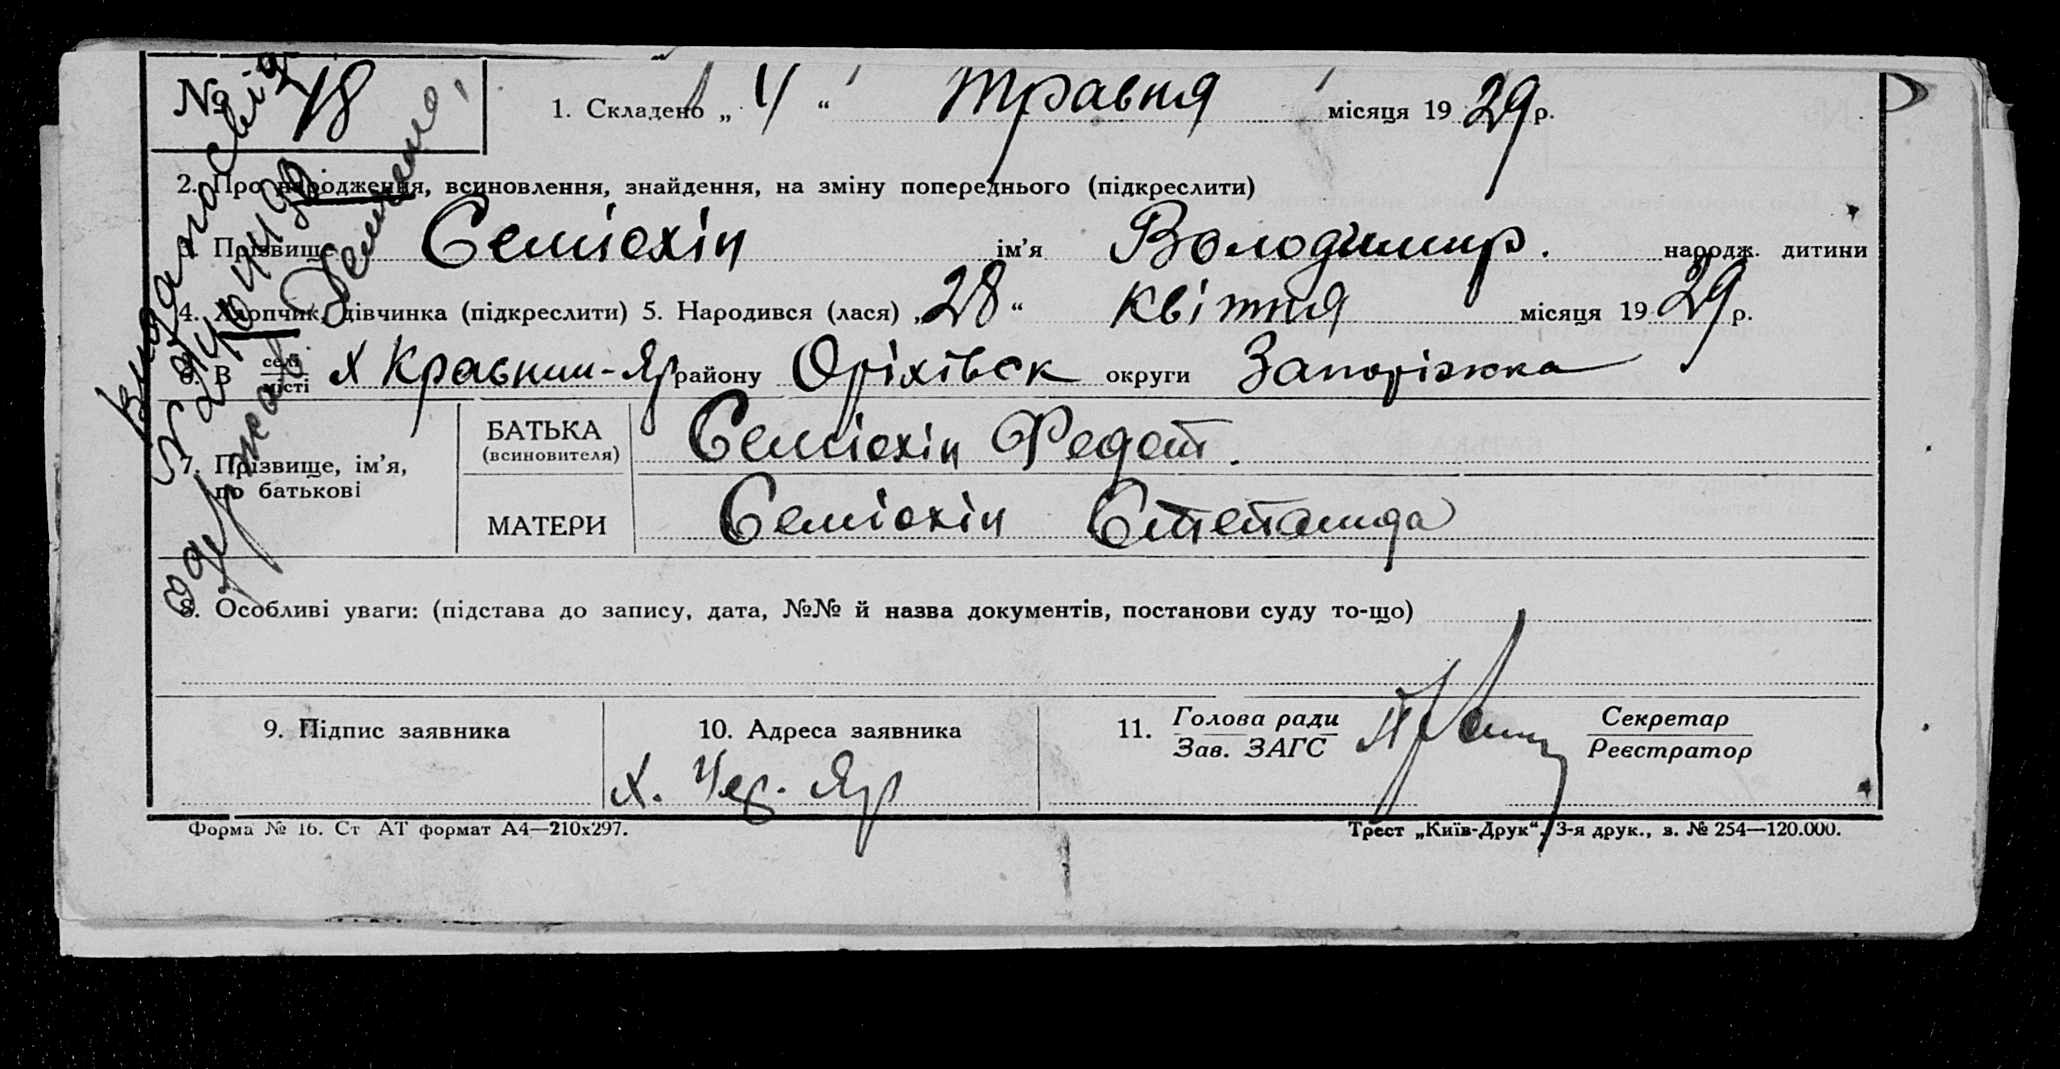 № 48
1. Складено „ 4 “ травня місяця 1929 р.
2. Про народження, всиновлення, знайдення, на зміну попереднього (підкреслити)
3. Прізвище Семіохін ім’я Володимир. народж. дитини
4. Хлопчик, дівчинка (підкреслити) 5. Народився (лася) „28“ квітня місяця 1929 р.
6. В селі місті х Красний-Яр району Оріхівськ округи Запоріжжа
7. Прізвище, ім’я, по батькові
БАТЬКА (всиновителя) Семіохін Федот.
МАТЕРИ Семіохін Степанида
8. Особливі уваги: (підстава до запису, дата, №№ й назва документів, постанови суду то-що)
9. Підпис заявника
10. Адреса заявника
х. Чер. Яр
11. Голова ради Зав. ЗАГС
Секретар Реєстратор
Форма № 16. Ст АТ формат А4—210х297.
Трест „Київ-Друк“, 3-я друк., з. № 254—120.000.
Видано свід